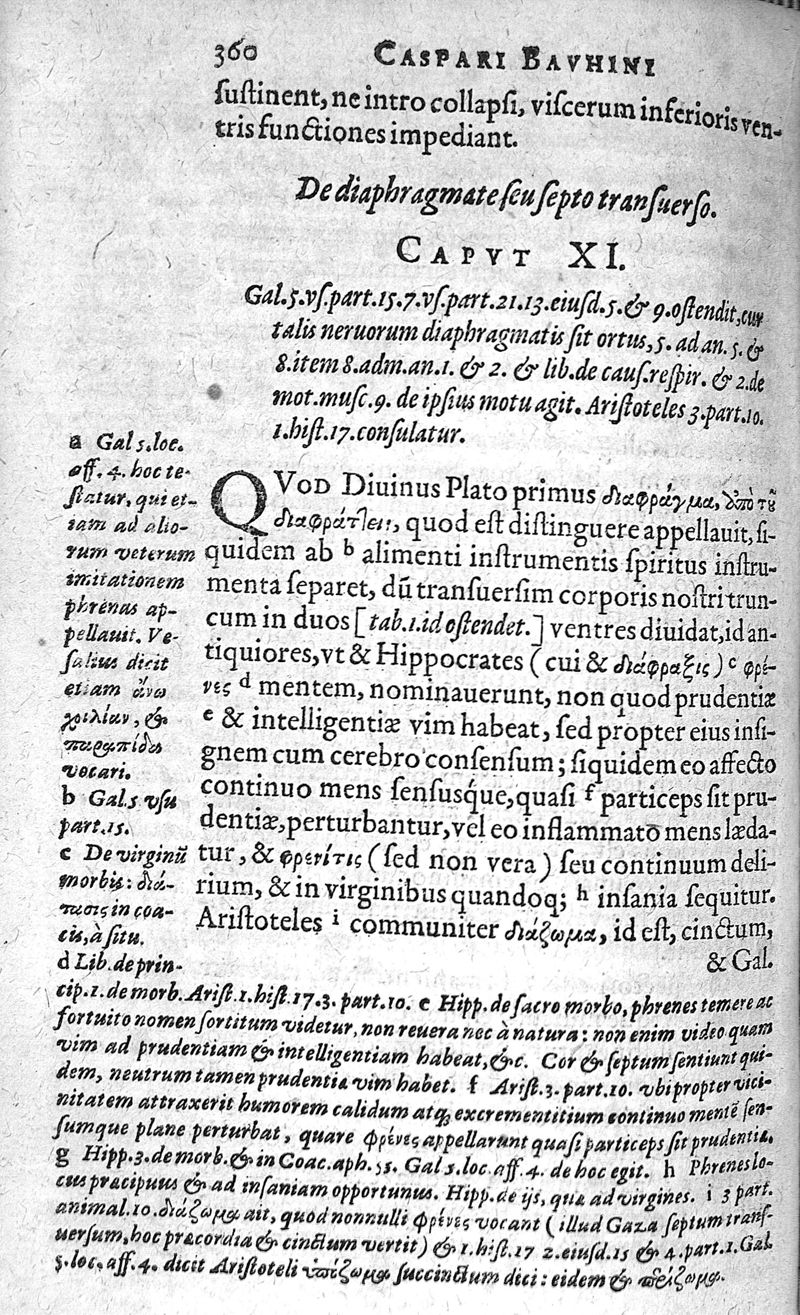 360 CASPARI BAVHINI
sustinent, ne intro collapsi, viscerum inferioris ven-
tris functiones impediant.
De diaphragmate seu septo transuerso.
CAPVT XI.
Gal. 5. vs. part. 15. 7. vs. part. 21. 13. eiusd. 5. & 9. ostendit, cur
talis neruorum diaphragmatis sit ortus, 5. ad an. 5. &
8. item 8. adm. an. 1. & 2. & lib. de caus. respir. & 2. de
mot. musc. 9. de ipsius motu agit. Aristoteles 3. part. 10.
1. hist. 17. consulatur.
QVOD Diuinus Plato primus διαφράγμα, ἀπὸ τῦ
διαφράτλειν, quod est distinguere appellauit, si-
quidem ab b alimenti instrumentis spiritus instru-
menta separet, dū transuersim corporis nostri trun-
cum in duos [tab. 1. id ostendet.] ventres diuidat, id an-
tiquiores, vt & Hippocrates (cui & διάφραξις) c φρέ-
νες d mentem, nominauerunt, non quod prudentiæ
e & intelligentiæ vim habeat, sed propter eius insi-
gnem cum cerebro consensum; siquidem eo affecto
continuo mens sensusq́ue, quasi f particeps sit pru-
dentiæ, perturbantur, vel eo inflammato mens læda-
tur, & φρενίτις (sed non vera) seu continuum deli-
rium, & in virginibus quandoq; h insania sequitur.
Aristoteles i communiter διάζωμα, id est, cinctum,
& Gal.
a Gal 5. loc.
aff. 4. hoc te-
statur, qui et-
iam ad alio-
rum veterum
imitationem
phrenas ap-
pellauit. Ve-
salius dicit
etiam ἄνω
χοιλίαν, &
vocari.
b Gal. 5 vsu
part. 15.
c De virginū
morbis: διά-
in coa-
cis, à situ.
d Lib. de prin-
cip. 1. de morb. Arist. 1. hist. 17. 3. part. 10. e Hipp. de sacro morbo, phrenes temere ac
fortuito nomen sortitum videtur, non reuera nec à natura: non enim video quam
vim ad prudentiam & intelligentiam habeat, &c. Cor & septum sentiunt qui-
dem, neutrum tamen prudentiæ vim habet. f Arist. 3. part. 10. vbi propter vici-
nitatem attraxerit humorem calidum atq; excrementitium continuo mentē sen-
sumque plane perturbat, quare φρένες appellarunt quasi particeps sit prudentiæ.
g Hipp. 3. de morb. & in Coac. aph. 55. Gal 5. loc. aff. 4. de hoc egit. h Phrenes lo-
cus præcipuus & ad insaniam opportunus. Hipp. de ijs, quæ ad virgines. i 3 part.
animal. 10. διάζωμα ait, quod nonnulli φρένες vocant (illud Gaza septum trans-
uersum, hoc præcordia & cinctum vertit) & 1. hist. 17 2. eiusd. 15 & 4. part. 1. Gal.
5. loc. aff. 4. dicit Aristoteli ὑπόζωμα succinctum dici: eidem &